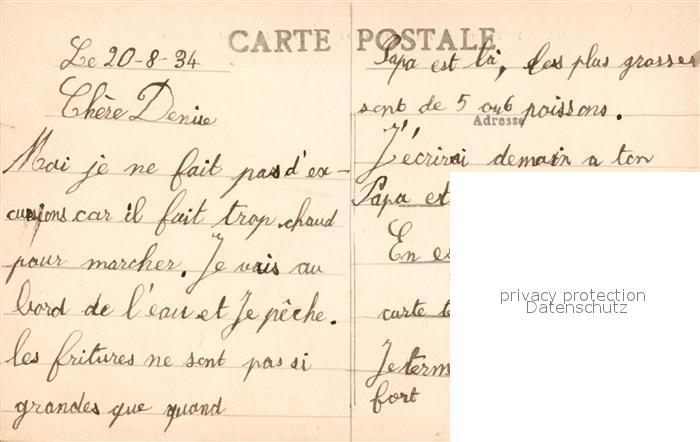 CARTE POSTALE
Le 20-8-34
Chère Denise
Moi je ne fait pas d'ex-
cursions car il fait trop chaud
pour marcher. Je vais au
bord de l'eau et Je pêche.
les fritures ne sont pas si
grandes que quand
Papa est là, les plus grosses
sont de 5 ou 6 poissons.
Adresse
J'écrirai demain a ton
Papa et
En es
carte te
Je term
fort
privacy protection
Datenschutz